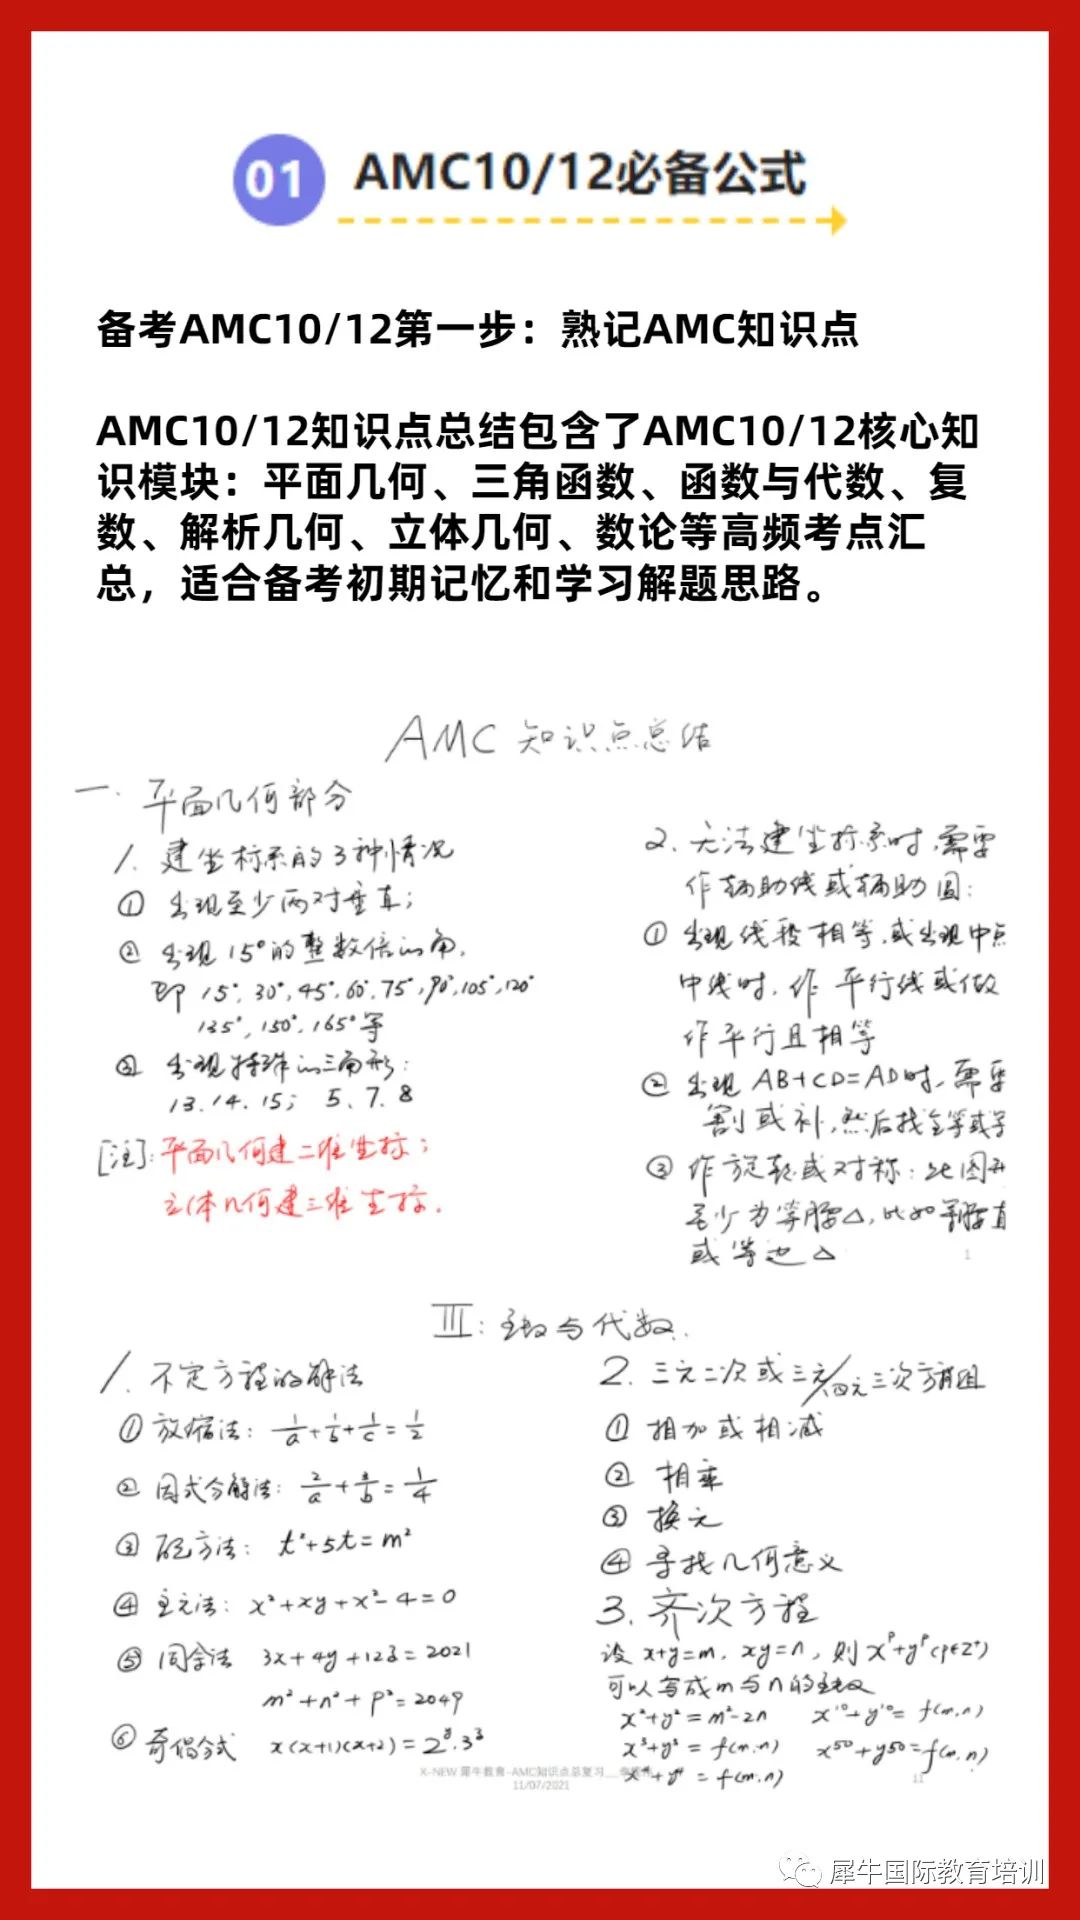 01
AMC10/12必备公式
备考AMC10/12第一步：熟记AMC知识点
AMC10/12知识点总结包含了AMC10/12核心知
识模块：平面几何、三角函数、函数与代数、复
数、解析几何、立体几何、数论等高频考点汇
总，适合备考初期记忆和学习解题思路。
AMC 知识点总结
一. 平面几何部分
1. 建坐标系的3种情况
① 出现至少两对垂直;
② 出现15°的整数倍的角.
即 15°, 30°, 45°, 60°, 75°, 90°, 105°, 120°
135°, 150°, 165°等
③ 出现特殊的三角形:
13. 14. 15; 5. 7. 8
[注]: 平面几何建二维坐标;
立体几何建三维坐标.
2. 无法建坐标系时, 需要
作辅助线或辅助圆:
① 出现线段相等, 或出现中点
中线时, 作平行线或做
作平行且相等
② 出现 AB+CD=AD时, 需要
割或补, 然后找全等或
③ 作旋转或对称: 此图
至少为等腰△, 比如等腰直
或等边△
1
III: 与代数.
1. 不定方程的解法
① 放缩法: 1/a + 1/b + 1/c = 1/2
② 因式分解法: 2/a + /b = 1/4
③ 配方法: t²+5t=m²
④ 主元法: x²+xy+x²-4=0
⑤ 同余法 3x+4y+123=2021
m²+n²+p²=2049
⑥ 奇偶分式 x(x+1)(x+2)=2⁸·3³
2. 三元二次或三元/四元三次方程组
① 相加或相减
② 相乘
③ 换元
④ 寻找几何意义
3. 齐次方程
设 x+y=m, xy=n, 则 xᵖ+yᵖ(p∈Z⁺)
可以写成m与n的
x²+y²=m²-2n x¹⁰+y¹⁰=f(m,n)
x³+y³=f(m,n) x⁵⁰+y⁵⁰=f(m,n)
x⁴+y⁴=f(m,n)
X-NEW 犀牛教育-AMC知识点总复习
11/07/2021
11
犀牛国际教育培训